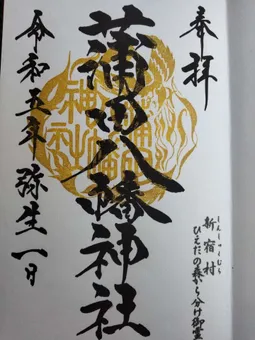 奉拝
しんしゅくむら
新宿村
ひえだの森から分け御霊
蒲田八幡神社
令和五年弥生一日